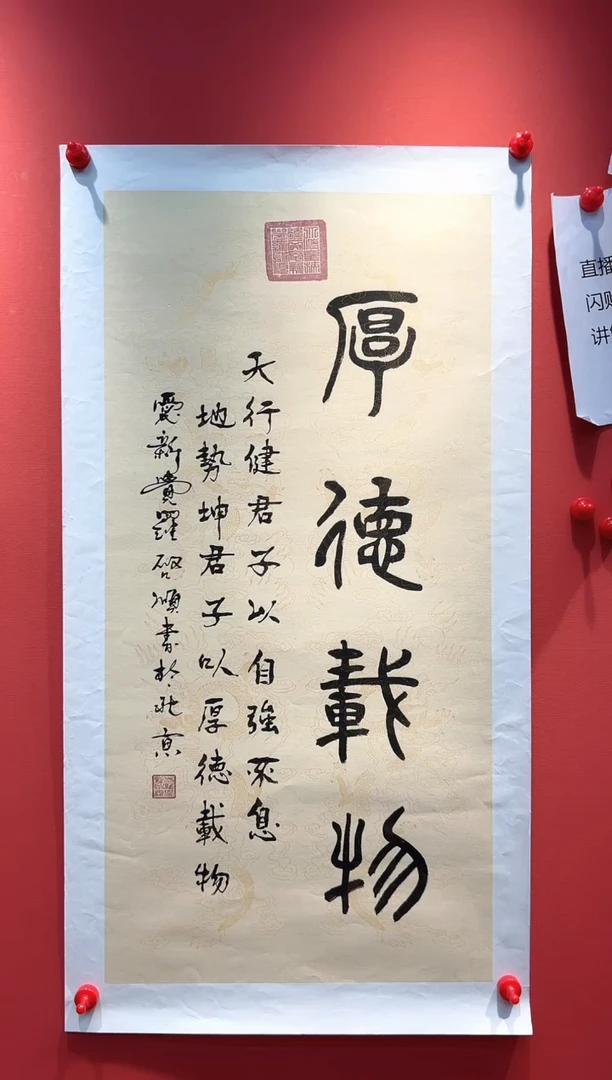 厚德載物
天行健君子以自強不息
地勢坤君子以厚德載物
愛新覺羅啓順書於北京
直播
闪购
讲